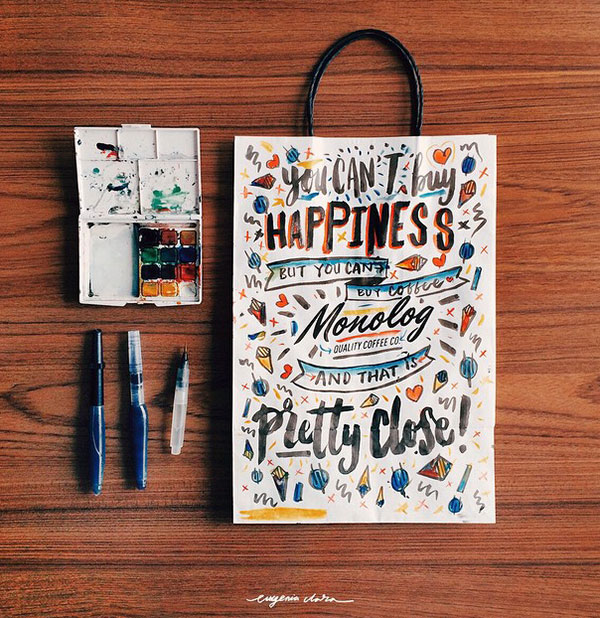 you CAN'T buy
HAPPINESS
BUT YOU CAN
BUY COFFEE
Monolog
QUALITY COFFEE CO.
AND THAT IS
pretty close!
eugenia clara